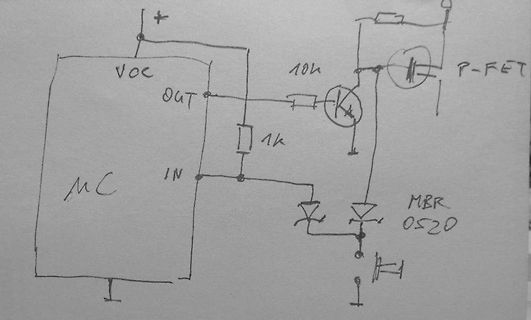 +
VCC
OUT
10k
P-FET
1k
IN
µC
MBR
0520